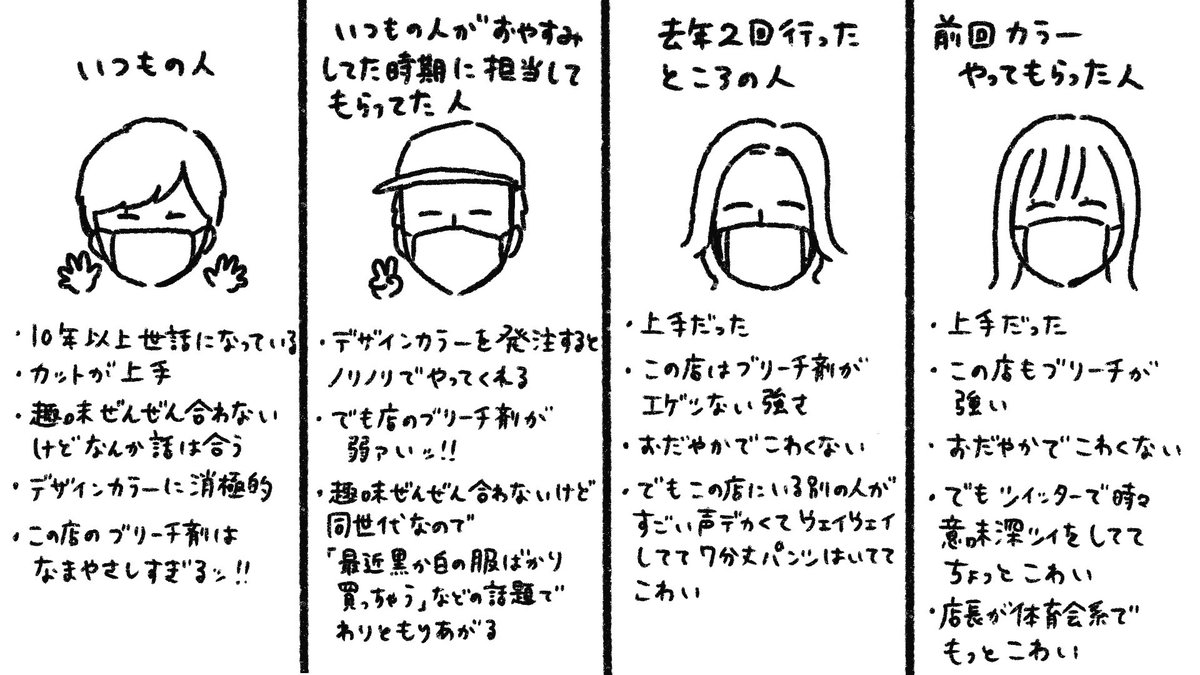 いつもの人
・10年以上世話になっている
・カットが上手
・趣味ぜんぜん合わない
けどなんか話は合う
・デザインカラーに消極的
・この店のブリーチ剤は
なまやさしすぎるッ!!
いつもの人がおやすみ
してた時期に担当して
もらってた人
・デザインカラーを発注すると
ノリノリでやってくれる
・でも店のブリーチ剤が
弱ァいッ!!
・趣味ぜんぜん合わないけど
同世代なので
「最近黒か白の服ばかり
買っちゃう」などの話題で
わりともりあがる
去年2回行った
ところの人
・上手だった
・この店はブリーチ剤が
エゲツない強さ
・おだやかでこわくない
・でもこの店にいる別の人が
すごい声デカくてウェイウェイ
してて7分丈パンツはいてて
こわい
前回カラー
やってもらった人
・上手だった
・この店もブリーチが
強い
・おだやかでこわくない
・でもツイッターで時々
意味深ツイをしてて
ちょっとこわい
・店長が体育会系で
もっとこわい